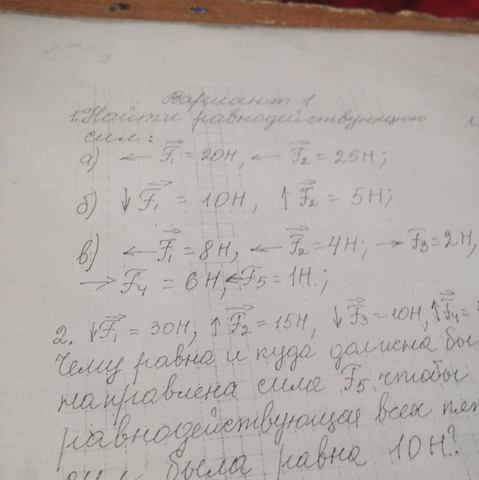 Вариант 1
1. Найти равнодействующую 1.
сил:
а) ← F₁ = 20Н, ← F₂ = 25Н;
б) ↓ F₁ = 10Н, ↑ F₂ = 5Н;
в) ← F₁ = 8Н, ← F₂ = 4Н; → F₃ = 2Н,
→ F₄ = 6Н, ← F₅ = 1Н.;
2. ↓ F₁ = 30Н, ↑ F₂ = 15Н, ↓ F₃ = 10Н, ↑ F₄ =
Чему равна и куда должна бы
направлена сила F₅ чтобы
равнодействующая всех пят
была равна 10Н?